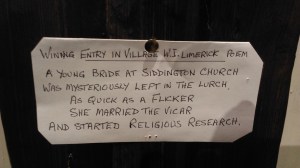 WINNING ENTRY IN VILLAGE W.I. LIMERICK POEM
A YOUNG BRIDE AT SIDDINGTON CHURCH
WAS MYSTERIOUSLY LEFT IN THE LURCH,
AS QUICK AS A FLICKER
SHE MARRIED THE VICAR
AND STARTED RELIGIOUS RESEARCH.